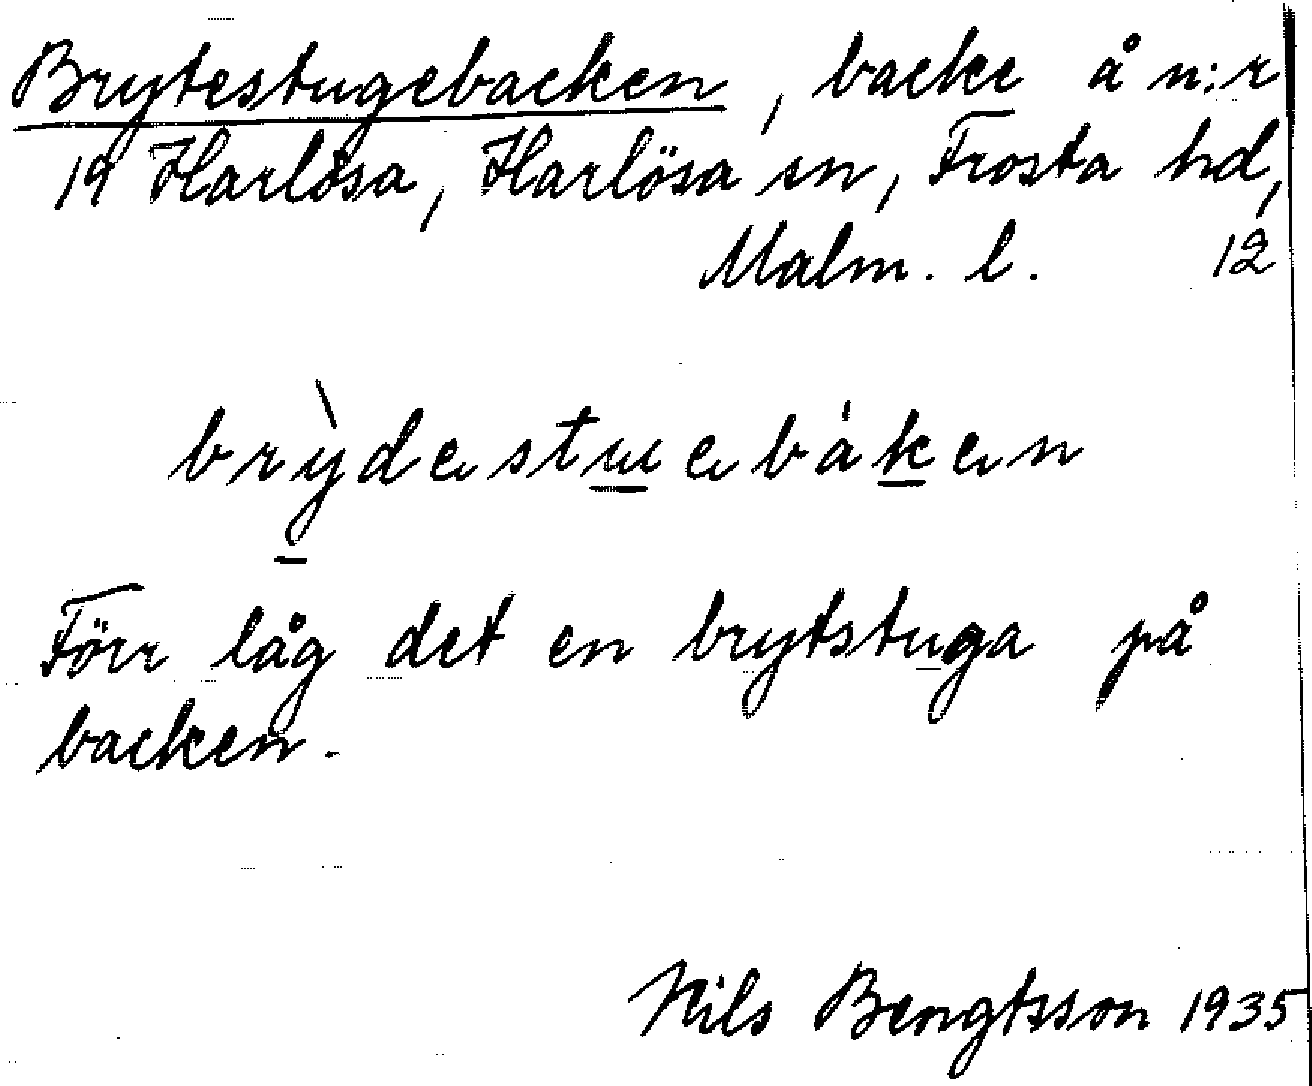 Brytestugebacken, backe å n:r
19 Harlösa, Harlösa sn, Frosta hd,
Malm. l. 12
brỳdestuebáken
Förr låg det en brytstuga på
backen.
Nils Bengtsson 1935